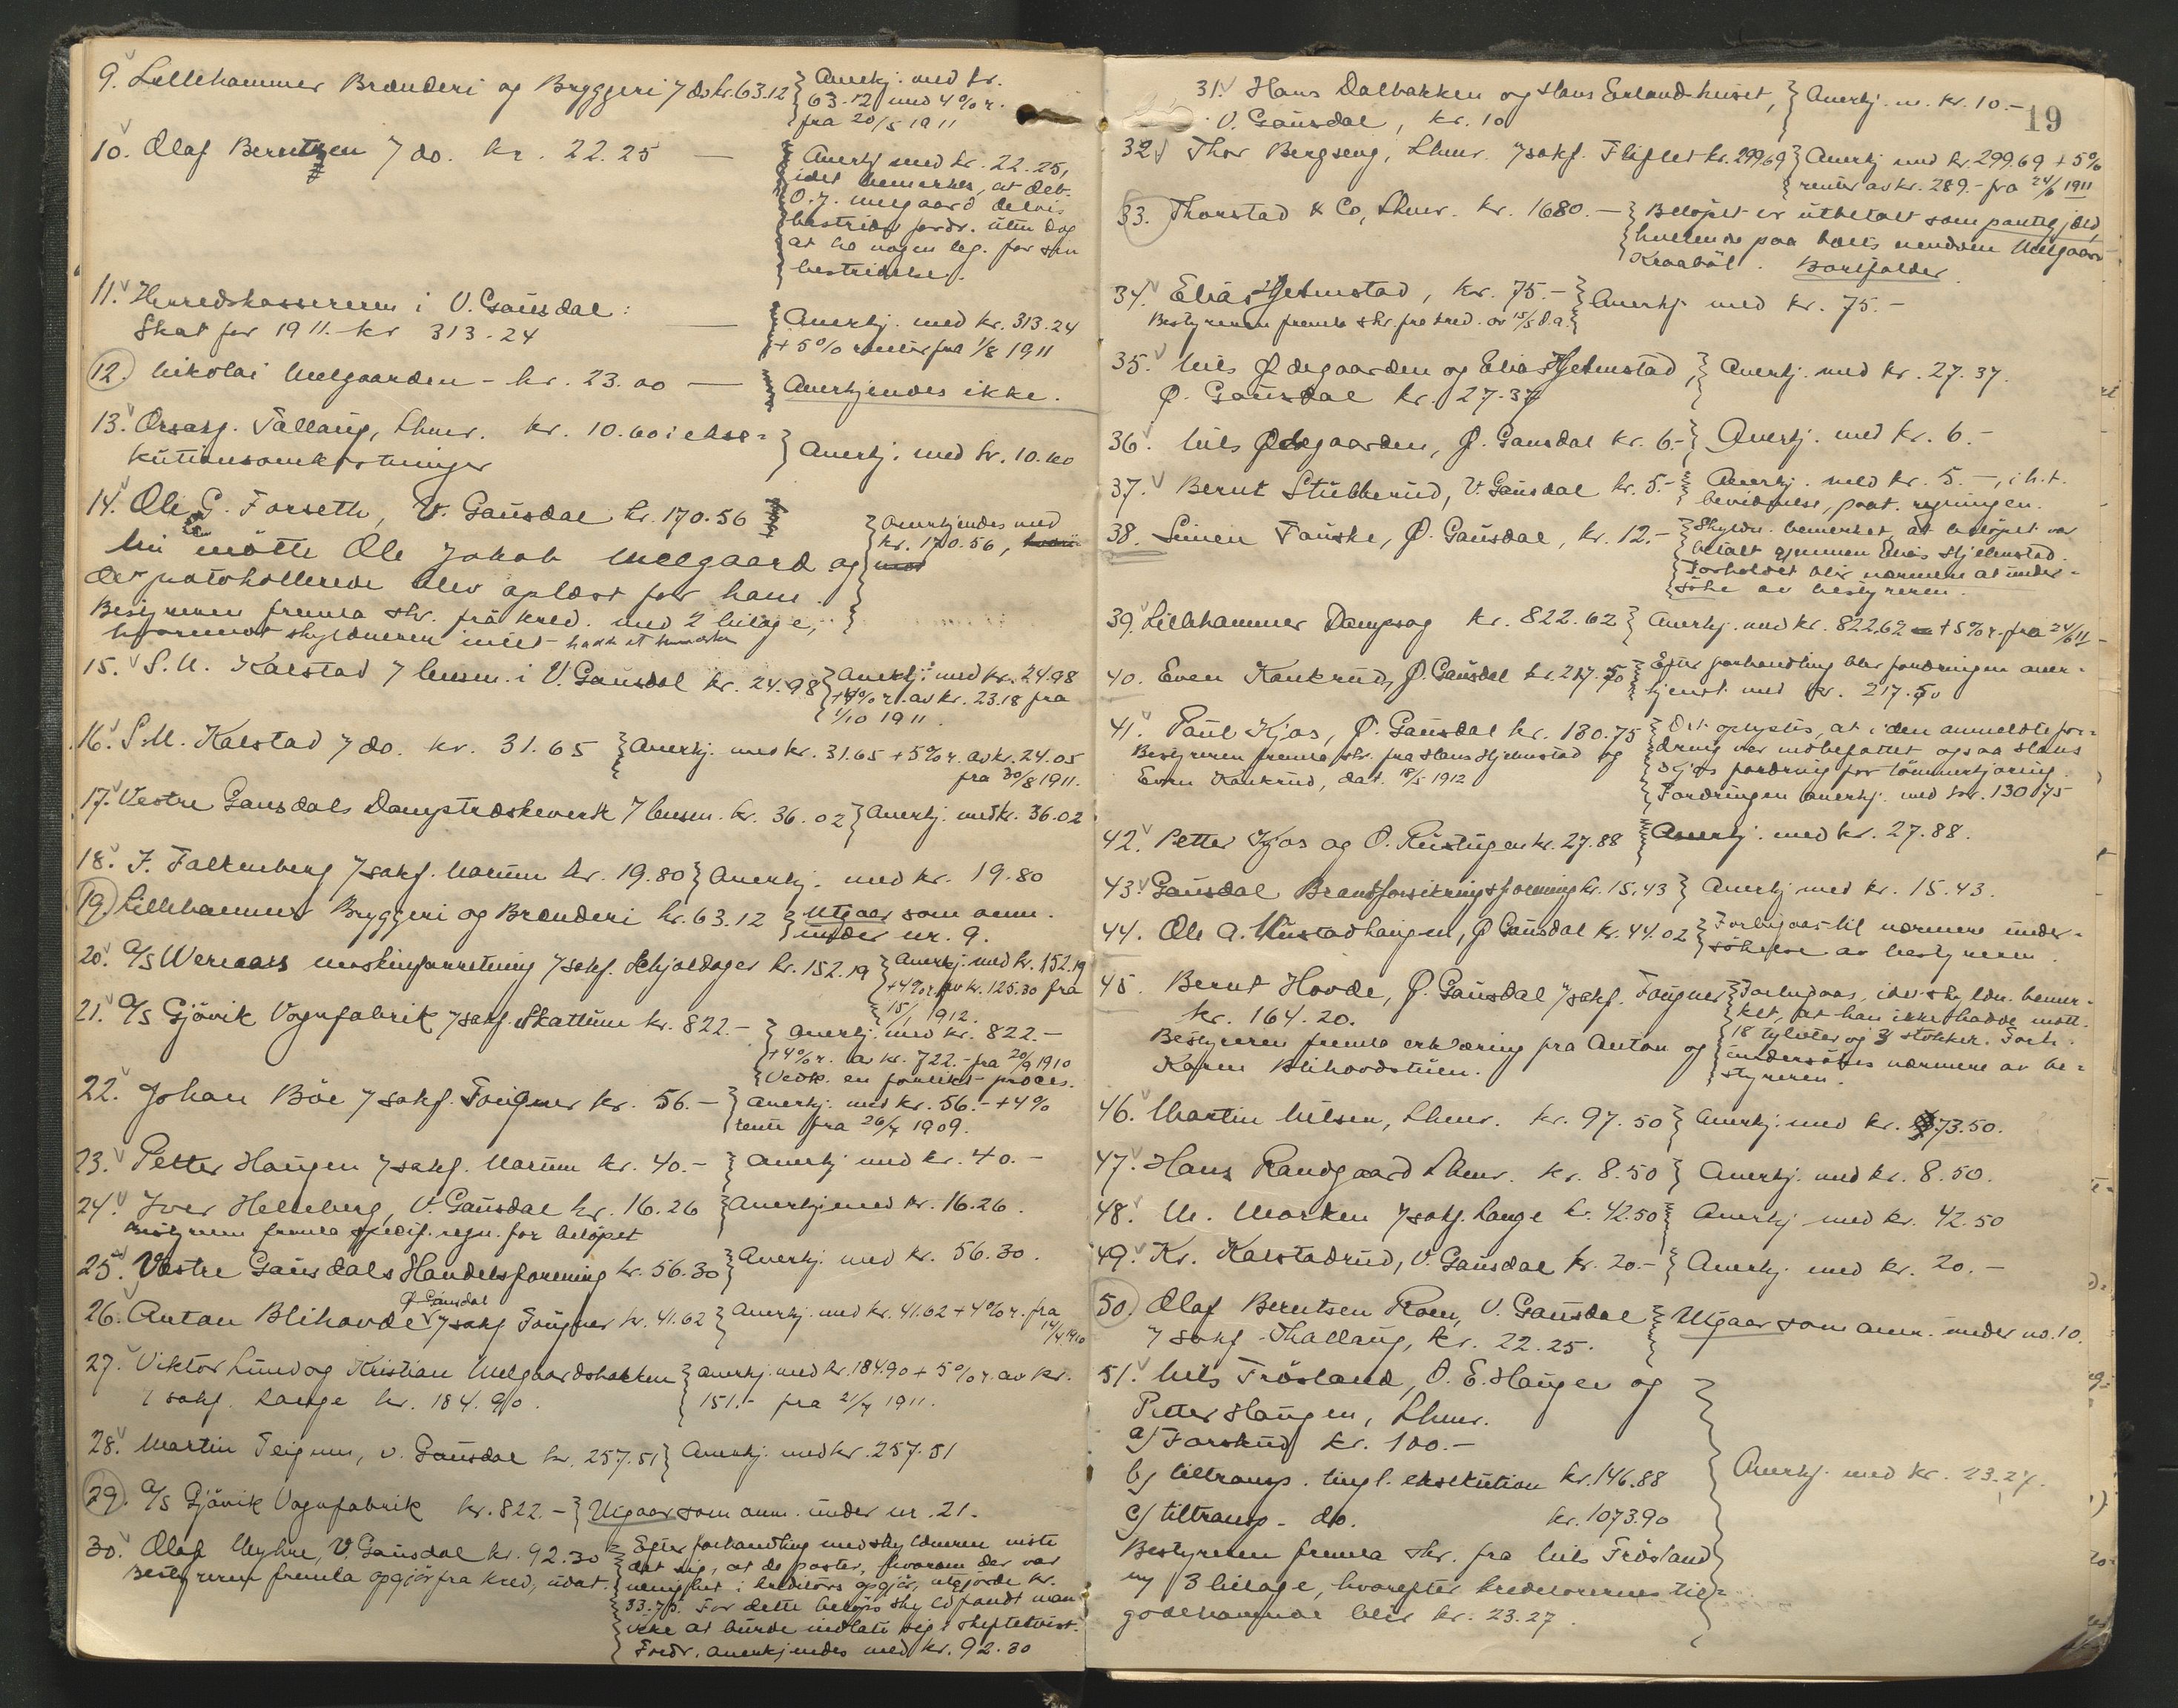 9. Lillehammer Brænderi og Bryggeri 7 do kr. 63.12 } Anerkj. med kr.
63.12 med 4% r.
fra 20/5 1911
10. Olaf Berntzen 7 do. kr. 22.25 — Anerkj med kr. 22.25,
idet bemerkes, at deb.
O. J. Melgaard delvis
bestrider fordr. uten dog
at ha nogen leg. for sin
bestridelse.
11. Herredskassereren i V. Gausdal:
Skat for 1911 - kr 313.24 — Anerkj. med kr. 313.24
+ 5% renter fra 1/8 1911
12. Nikolai Melgaarden - kr. 23.00 — Anerkjendes ikke.
13. Orsasf. Tallaug, Lhmr. kr. 10.60 i ekse-
kutionsomkostninger } Anerkj. med kr. 10.60
14. Ole G. Forseth, V. Gausdal kr. 170.56 } Anerkjendes med
kr. 170.56,
Nu mötte Ole Jakob Melgaard og
det protokollerede blev oplæst for ham.
Bestyreren fremla skr. fra kred. med 2 bilage,
hvorimot skyldneren intet hadde at bemerke
15. S. M. Kalstad 7 lensm. i V. Gausdal kr. 24.98 } Anerkj. med kr. 24.98
+ 4% r. av kr. 23.18 fra
1/10 1911.
16. S. M. Kalstad 7 do. kr. 31.65 } Anerkj. med kr. 31.65 + 5% r. av kr. 24.05
fra 30/8 1911.
17. Vestre Gausdals Damptræskeverk 7 lensm. kr. 36.02 } Anerkj. med kr. 36.02
18. F. Falkenberg 7 sakf. Narum kr. 19.80 } Anerkj. med kr. 19.80
19. Lillehammer Bryggeri og Brænderi kr. 63.12 } Utgaar som anm.
under nr. 9.
20. A/S Weraas maskinforretning 7 sakf. Schjoldager kr. 152.19 } Anerkj. med kr. 152.19
+ 4% r. av kr. 125.30 fra
15/1 1912.
21. A/S Gjövik Vognfabrik 7 sakf. Skattum kr. 822.- } Anerkj. med kr. 822.-
+ 4% r. av kr. 722.- fra 20/9 1910
Vedk. en forliks-proces.
22. Johan Böe 7 sakf. Fougner kr. 56.- } Anerkj. med kr. 56.- + 4%
rente fra 26/4 1909.
23. Petter Haugen 7 sakf. Narum kr. 40.- } Anerkj med kr. 40.-
24. Iver Helleberg, V. Gausdal kr. 16.26 } Anerkj. med kr. 16.26.
Bestyreren fremla specif. regn. for belöpet
25. Vestre Gausdals Handelsforening kr. 56.30 } Anerkj. med kr. 56.30.
Ø. Gausdal
26. Anton Blihovde 7 sakf Fougner kr. 41.62 } Anerkj. med kr. 41.62 + 4% r. fra
14/4 1910
27. Viktor Lund og Kristian Melgaardsbakken } Anerkj. med kr. 184.90 + 5% r. av kr.
7 sakf. Lange kr. 184.90. 151.- fra 21/7 1911.
28. Martin Teigum, V. Gausdal kr. 257.51 } Anerkj. med kr. 257.51
29. A/S Gjövik Vognfabrik kr. 822.- } Utgaar som anm. under nr. 21.
30. Olaf Myhre, V. Gausdal kr. 92.30 } Efter forhandling med skyldneren viste
Bestyreren fremla opgjör fra kred, udat. det sig, at de poster, hvorom der var
uenighet i kreditors opgjör, utgjorde kr.
33.75. For dette belöps skyld fandt man
ikke at burde indlate sig i skiftetvist.
Fordr. anerkjendes med kr. 92.30
19
31. Hans Dalbakken og Hans Erlandhuset, } Anerkj. m. kr. 10.-
V. Gausdal, kr. 10
32. Thor Bergseng, Lhmr. 7 sakf. Fliflet kr. 299.69 } Anerkj med kr. 299.69 + 5%
renter av kr. 289.- fra 24/6 1911
33. Thorstad & Co, Lhmr. kr. 1680.- } Belöpet er utbetalt som pantegjæld,
heftende paa boets eiendom Melgaard
Kraaböl. Bortfalder.
34. Elias Hjelmstad, kr. 75.- } Anerkj. med kr. 75.-
Bestyreren fremla skr. fra kred. av 15/5 d.a.
35. Nils Ødegaarden og Elias Hjelmstad, } Anerkj. med kr. 27.37.
Ø. Gausdal kr. 27.37
36. Nils Ødegaarden, Ø. Gausdal kr. 6.- } Anerkj. med kr. 6.-
37. Bernt Stubberud, V. Gausdal kr. 5.- } Anerkj. med kr. 5.-, i h. t.
bevidnelse, paat. regningen.
38. Simen Fauske, Ø. Gausdal, kr. 12.- } Skyldn. bemerket, at belöpet var
betalt gjennem Elias Hjelmstad.
Forholdet blir nærmere at under-
söke av bestyreren.
39. Lillehammer Dampsag kr. 822.62 } Anerkj. med kr. 822.62 + 5% r. fra 24/6 11-
40. Even Kankrud, Ø. Gausdal kr. 217.50 } Efter forhandling blev fordringen aner-
kjendt med kr. 217.50
41. Paul Kjos, Ø. Gausdal kr. 130.75 } Det oplystes, at i den anmeldte for-
Bestyreren fremla skr. fra Hans Hjelmstad og dring var indbefattet ogsaa Hans
Even Kankrud, dat. 18/5 1912 Kjos fordring for tömmerkjöring.
Fordringen anerkj. med kr. 130.75
42. Petter Kjos og O. Rustugen kr. 27.88 } Anerkj. med kr. 27.88.
43. Gausdal Brandforsikringsforening kr. 15.43 } Anerkj med kr. 15.43.
44. Ole A. Mustadhaugen, Ø Gausdal kr. 44.02 } Forbigaaes til nærmere under-
sökelse av bestyreren.
45. Bernt Hovde, Ø. Gausdal 7 sakf. Fougner } Forbigaas, idet skyldn. bemer-
kr. 164.20. ket, at han ikke hadde mott.
Bestyreren fremla erklæring fra Anton og 18 tylvter og 3 stokker. Forh.
Karen Blihovdstuen. undersökes nærmere av be-
styreren.
46. Martin Nilsen, Lhmr. kr. 97.50 } Anerkj. med kr. 73.50.
47. Hans Randgaard Lhmr. kr. 8.50 } Anerkj. med kr. 8.50.
48. M. Morken 7 sakf. Lange kr. 42.50 } Anerkj med kr. 42.50
49. Kr. Kalstadrud, V. Gausdal kr. 20.- } Anerkj. med kr. 20.-
50. Olaf Berntsen Roen, V. Gausdal } Utgaar som anm. under no. 10.
7 sakf Thallaug, kr. 22.25.
51. Nils Frösland, O. E. Haugen og
Petter Haugen, Lhmr.
a) Forskud kr. 100.-
b) tiltransp. tingl. eksekution kr. 146.88 } Anerkj. med kr. 23.27.
c) tiltransp. do. kr. 1073.90
Bestyreren fremla skr. fra Nils Frösland
m/ 3 bilage, hvorefter kreditorernes til-
godehavende blir kr. 23.27.